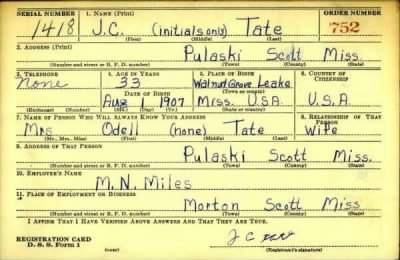 SERIAL NUMBER 1. NAME (Print) ORDER NUMBER
1418 J.C. (initials only) Tate 752
(First) (Middle) (Last)
2. ADDRESS (Print)
Pulaski Scott Miss.
(Number and street or R. F. D. number) (Town) (County) (State)
3. TELEPHONE 4. AGE IN YEARS 5. PLACE OF BIRTH 6. COUNTRY OF CITIZENSHIP
None 33 Walnut Grove Leake
DATE OF BIRTH (Town or county)
Aug 1 1907 Miss. USA U.S.A.
(Exchange) (Number) (Mo.) (Day) (Yr.) (State or country)
7. NAME OF PERSON WHO WILL ALWAYS KNOW YOUR ADDRESS 8. RELATIONSHIP OF THAT PERSON
Mrs Odell (none) Tate Wife
(Mr., Mrs., Miss) (First) (Middle) (Last)
9. ADDRESS OF THAT PERSON
Pulaski Scott Miss.
(Number and street or R. F. D. number) (Town) (County) (State)
10. EMPLOYER'S NAME
M. N. Miles
11. PLACE OF EMPLOYMENT OR BUSINESS
Morton Scott Miss
(Number and street or R. F. D. number) (Town) (County) (State)
I AFFIRM THAT I HAVE VERIFIED ABOVE ANSWERS AND THAT THEY ARE TRUE.
REGISTRATION CARD J C
D. S. S. Form 1 (Registrant's signature)